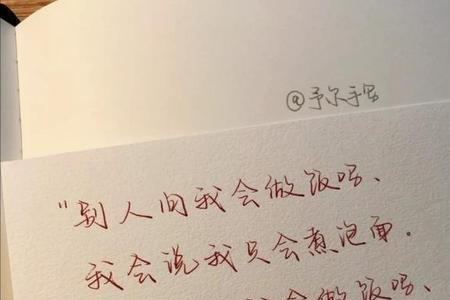 @予尔手写
"别人问我会做饭吗、
我会说我只会煮泡面.
会做饭吗、